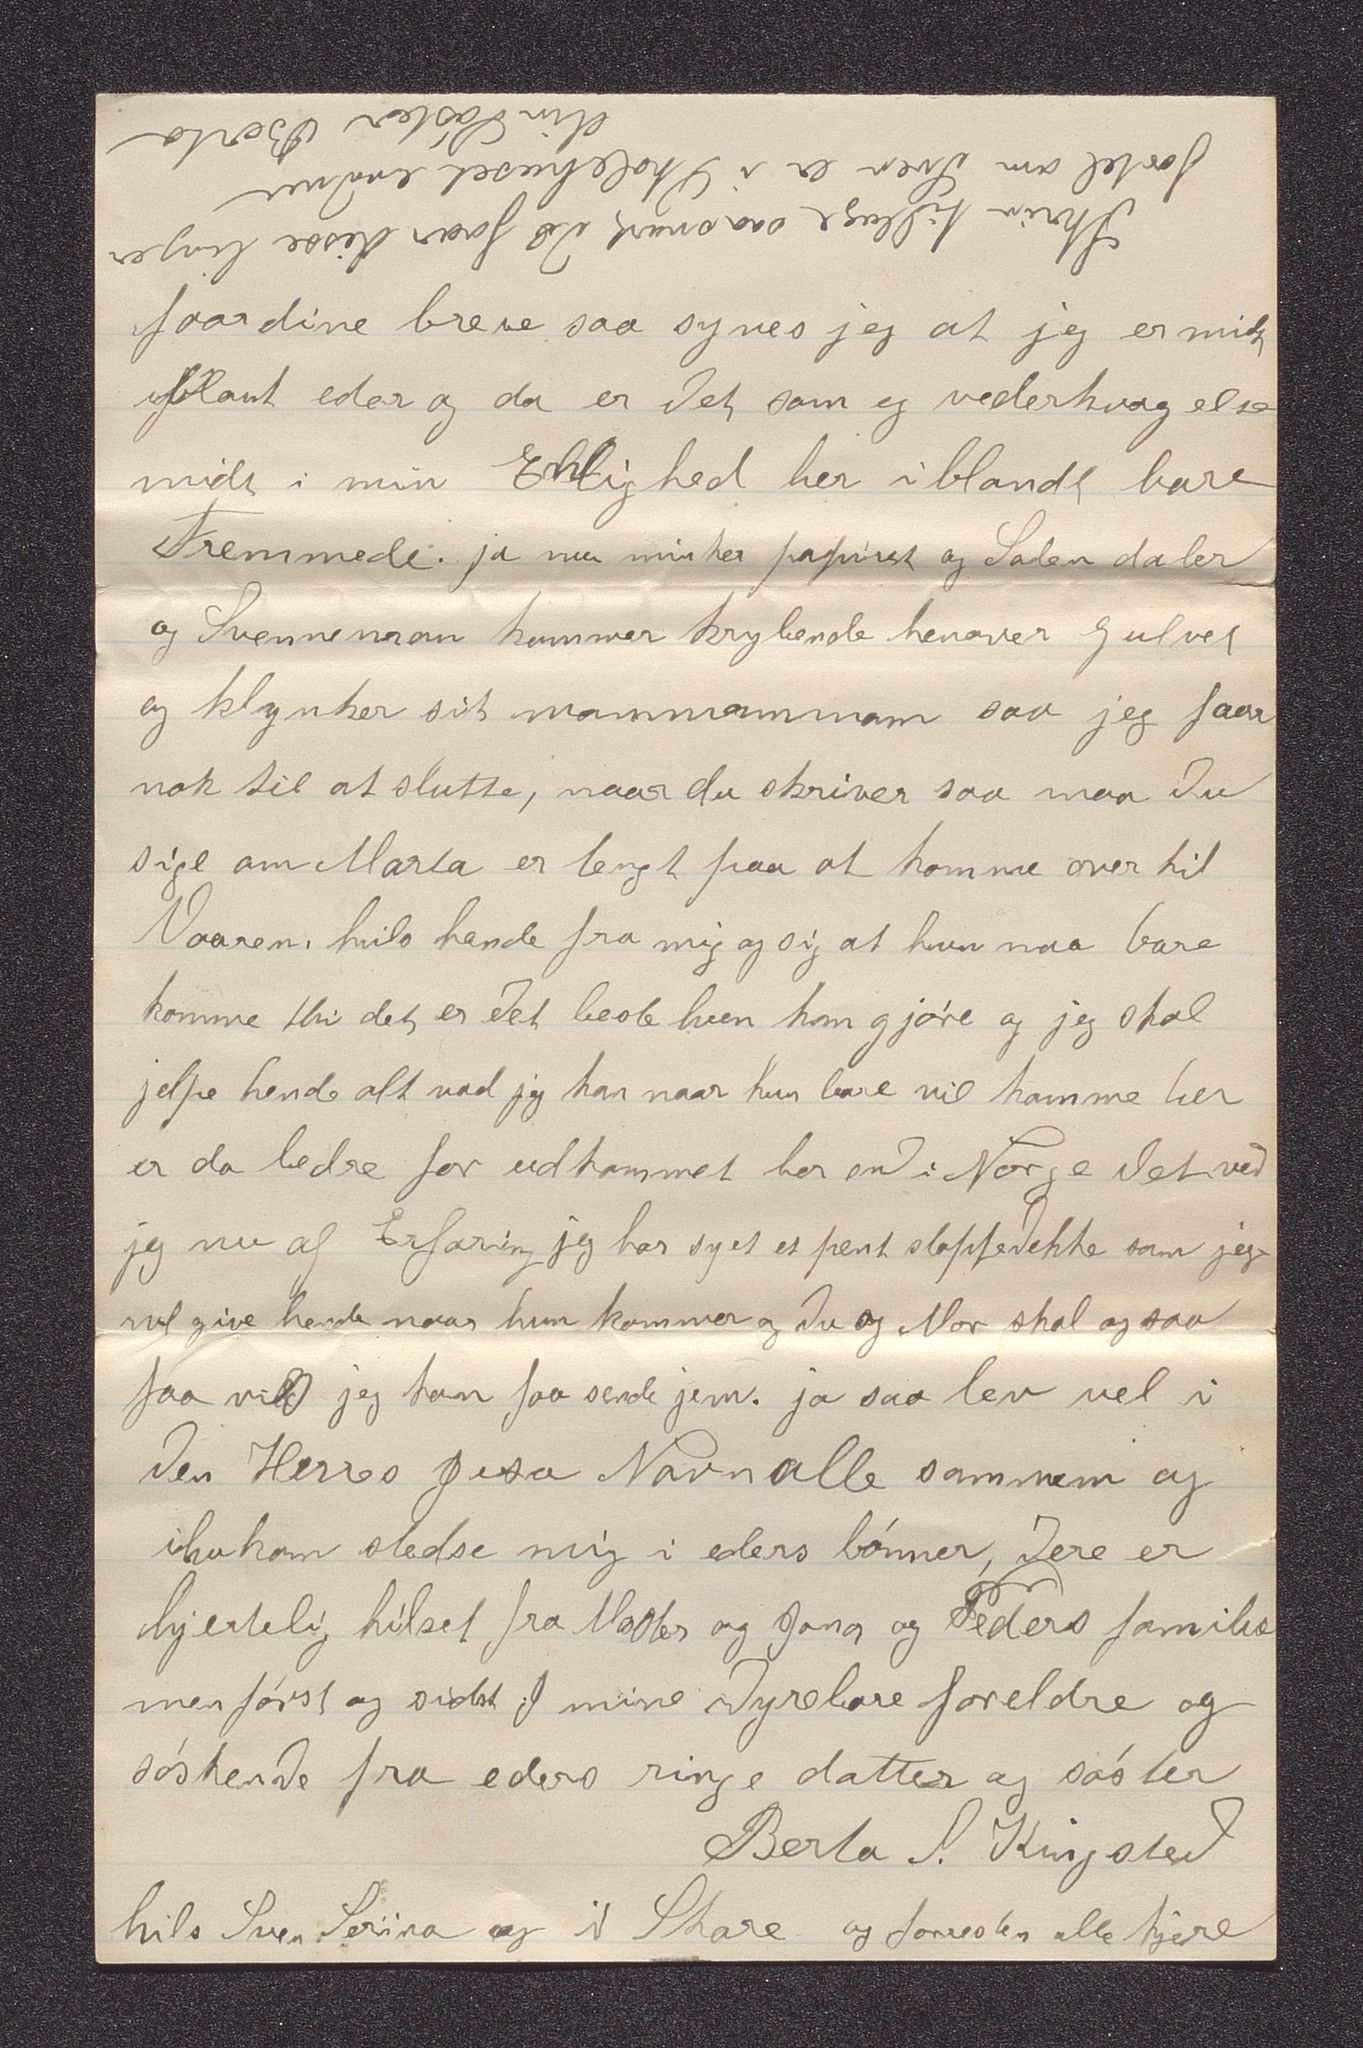 Skriv tilbage saasnart du faar disse linjer
fortel om Sven er i Skolehuset endnu
din Søster Berta
faar dine breve saa synes jeg at jeg er midt
iblant eder og da er det som eg vederkvagelse
midt i min Enlighed her iblandt bare
Fremmede. ja nu minker papiret og Solen daler
og Svennemann kommer krybende henover gulvet
og klynker sit mammammam saa jeg faar
nok til at slutte, naar du skriver saa maa du
sige om Marta er tengt paa at komme over til
Vaaren. hils hende fra mig og sig at hun maa bare
komme thi det er det beste hun kan gjóre og jeg skal
jelpe hende alt vad jeg kan naar hun bare vil komme her
er da bedre for udkommet her end i Norge det ved
jeg nu af Erfaring jeg har syet et pent sloppedekke som jeg
vil give hende naar hun kommer og du og Mor skal og saa
faa vis jeg kan faa sende jem. ja saa lev vel i
den Herres Jesu Navn alle sammem og
ihukom stedse mig i eders bónner, dere er
hjertelig hilset fra Moster og Jona og Peders familie
men fórst og sidst I mine dyrebare foreldre og
sóskende fra eders ringe datter og sóster
Berta S. Kingsted
hils Sven Seriina og i Skare og forresten alle kjere